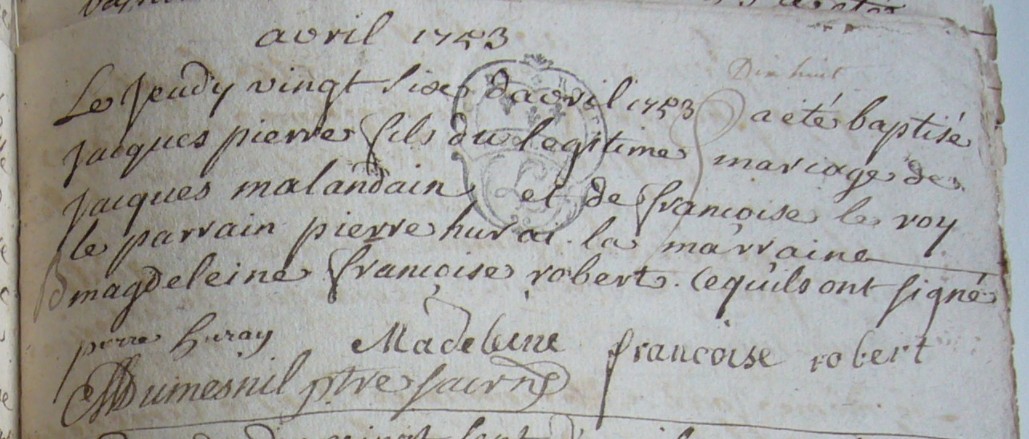 avril 1753
Dix huit
Le Jeudy vingt six d'avril 1753 a eté baptisé
Jacques pierre fils du legitime mariage de
Jacques malandain et de françoise le roy
le parrain pierre hurai. la marraine
magdeleine françoise robert. Ce qu'ils ont signé
pierre huray Madeleine françoise robert
Dumesnil ptre